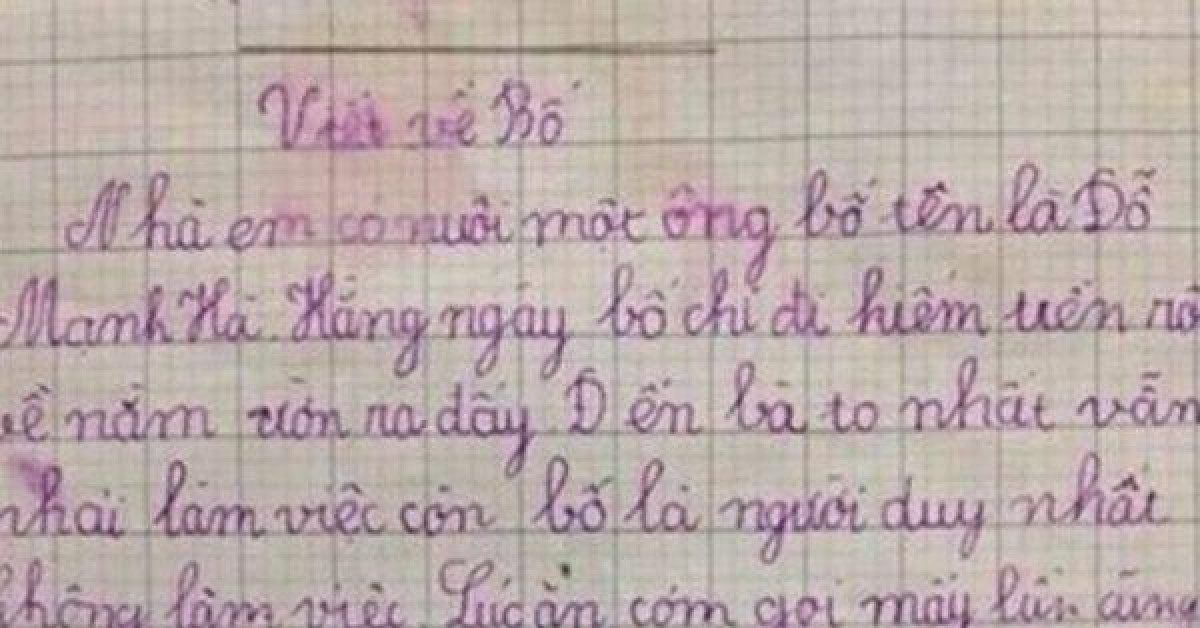 Viết về Bố
Nhà em có nuôi một ông bố tên là Đỗ
Mạnh Hà. Hằng ngày bố chỉ đi kiếm tiền rồ
về nằm ườn ra đấy Đến bà to nhất vẫn
phải làm việc còn bố là người duy nhất
không làm việc. Lúc ăn cơm gọi mấy lần cũng